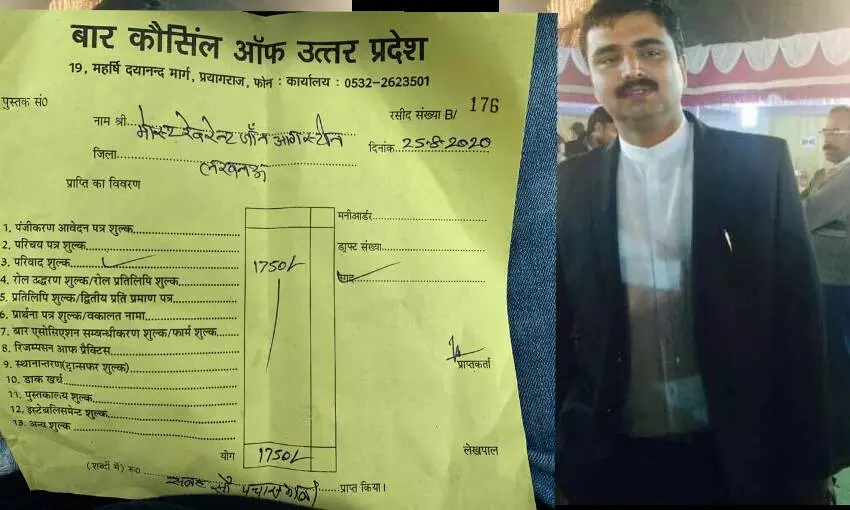 बार कौसिंल ऑफ उत्तर प्रदेश
19, महर्षि दयानन्द मार्ग, प्रयागराज, फोन : कार्यालय : 0532-2623501
पुस्तक सं० रसीद संख्या B/ 176
नाम श्री मोस्ट रेवरेन्ट जॉन आगस्टीन
जिला लखनऊ दिनांक 25-8-2020
प्राप्ति का विवरण
मनीआर्डर
1. पंजीकरण आवेदन पत्र शुल्क
2. परिचय पत्र शुल्क ड्राफ्ट संख्या
3. परिवाद शुल्क 1750/-
4. रोल उद्धरण शुल्क/रोल प्रतिलिपि शुल्क नगद
5. प्रतिलिपि शुल्क/द्वितीय प्रति प्रमाण पत्र
6. प्रार्थना पत्र शुल्क/वकालत नामा
7. बार एसोसिएशन सम्बन्धीकरण शुल्क/फार्म शुल्क
8. रिजम्पसन आफ प्रैक्टिस
9. स्थानान्तरण(ट्रान्सफर शुल्क) प्राप्तकर्ता
10. डाक खर्च
11. पुस्तकालय शुल्क
12. इस्टेबलिसमेन्ट शुल्क
13. अन्य शुल्क
योग 1750/- लेखपाल
(शब्दों में) रू० सत्रह सौ पचास प्राप्त किया।